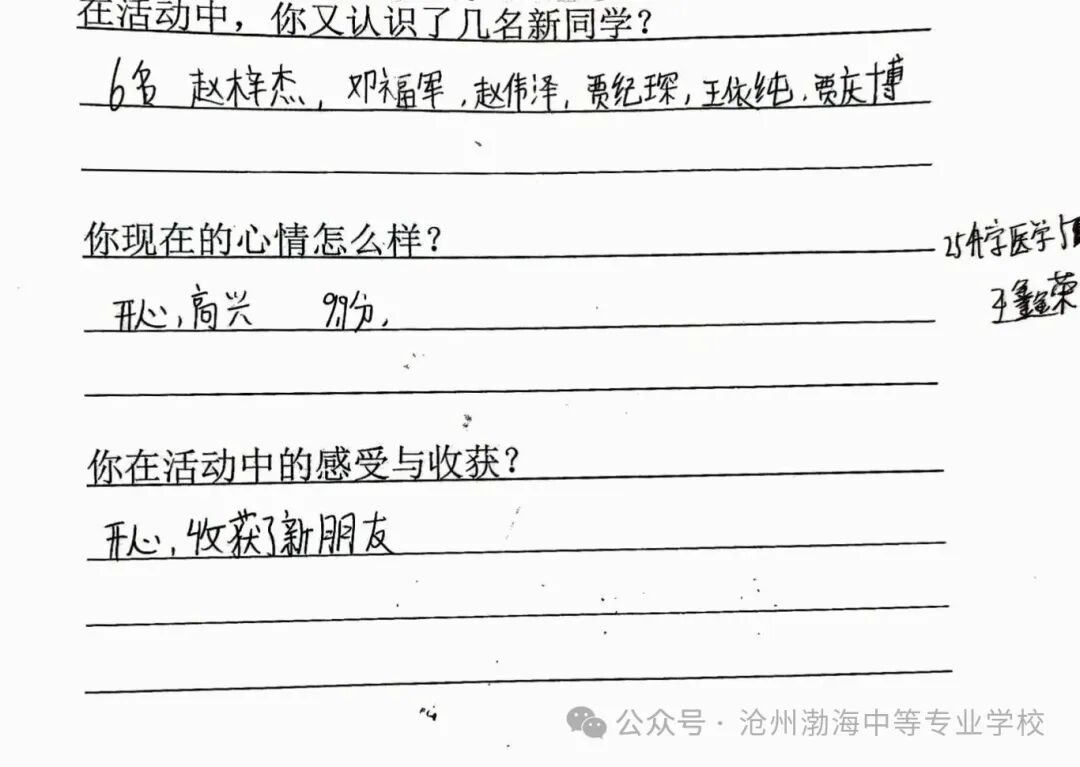 在活动中，你又认识了几名新同学？
6名 赵梓杰，邓福军，赵伟泽，贾纪琛，王依纯，贾庆博
你现在的心情怎么样？
开心，高兴 99分，
25升学医学
王鑫荣
你在活动中的感受与收获？
开心，收获了新朋友
公众号·沧州渤海中等专业学校